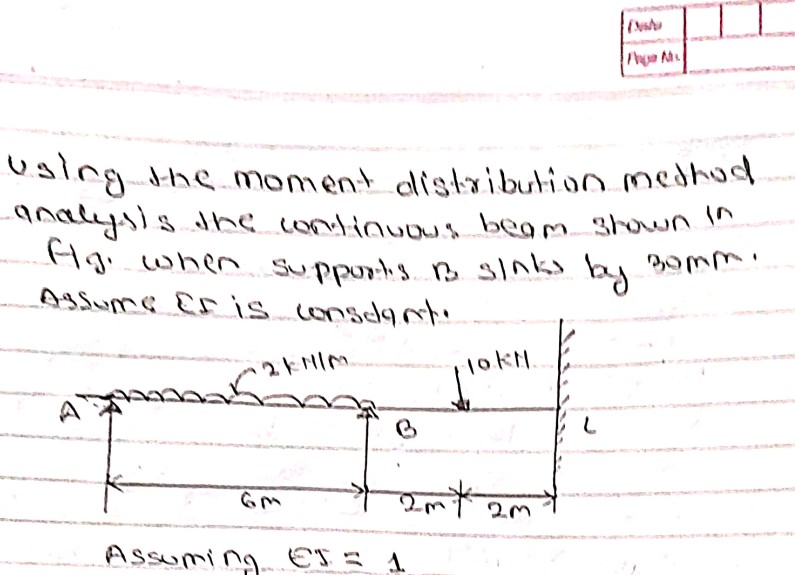 Date
Page No.
using the moment distribution method
analysis the continuous beam shown in
fig. when supports B sinks by 30mm.
Assume EI is constant.
2kN/m
10kN
A
B
C
6m
2m
2m
Assuming EI = 1